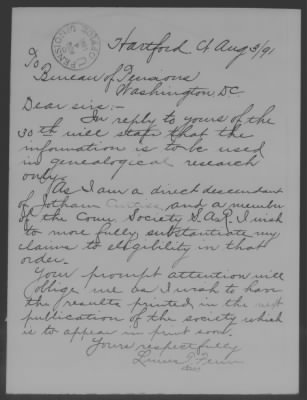 Hartford Ct Aug 3/91
To
Bureau of Pensions
Washington, DC
Dear sirs:-
In reply to yours of the
30th will state that the
information is to be used
in genealogical research
only.
As I am a direct descendant
of Jotham and a member
of the Conn. Society S.A.R. I wish
to more fully substantiate my
claims to eligibility in that
order.
Your prompt attention will
oblige me as I wish to have
the results printed in the next
publication of the society which
is to appear in print soon.
Yours respectfully